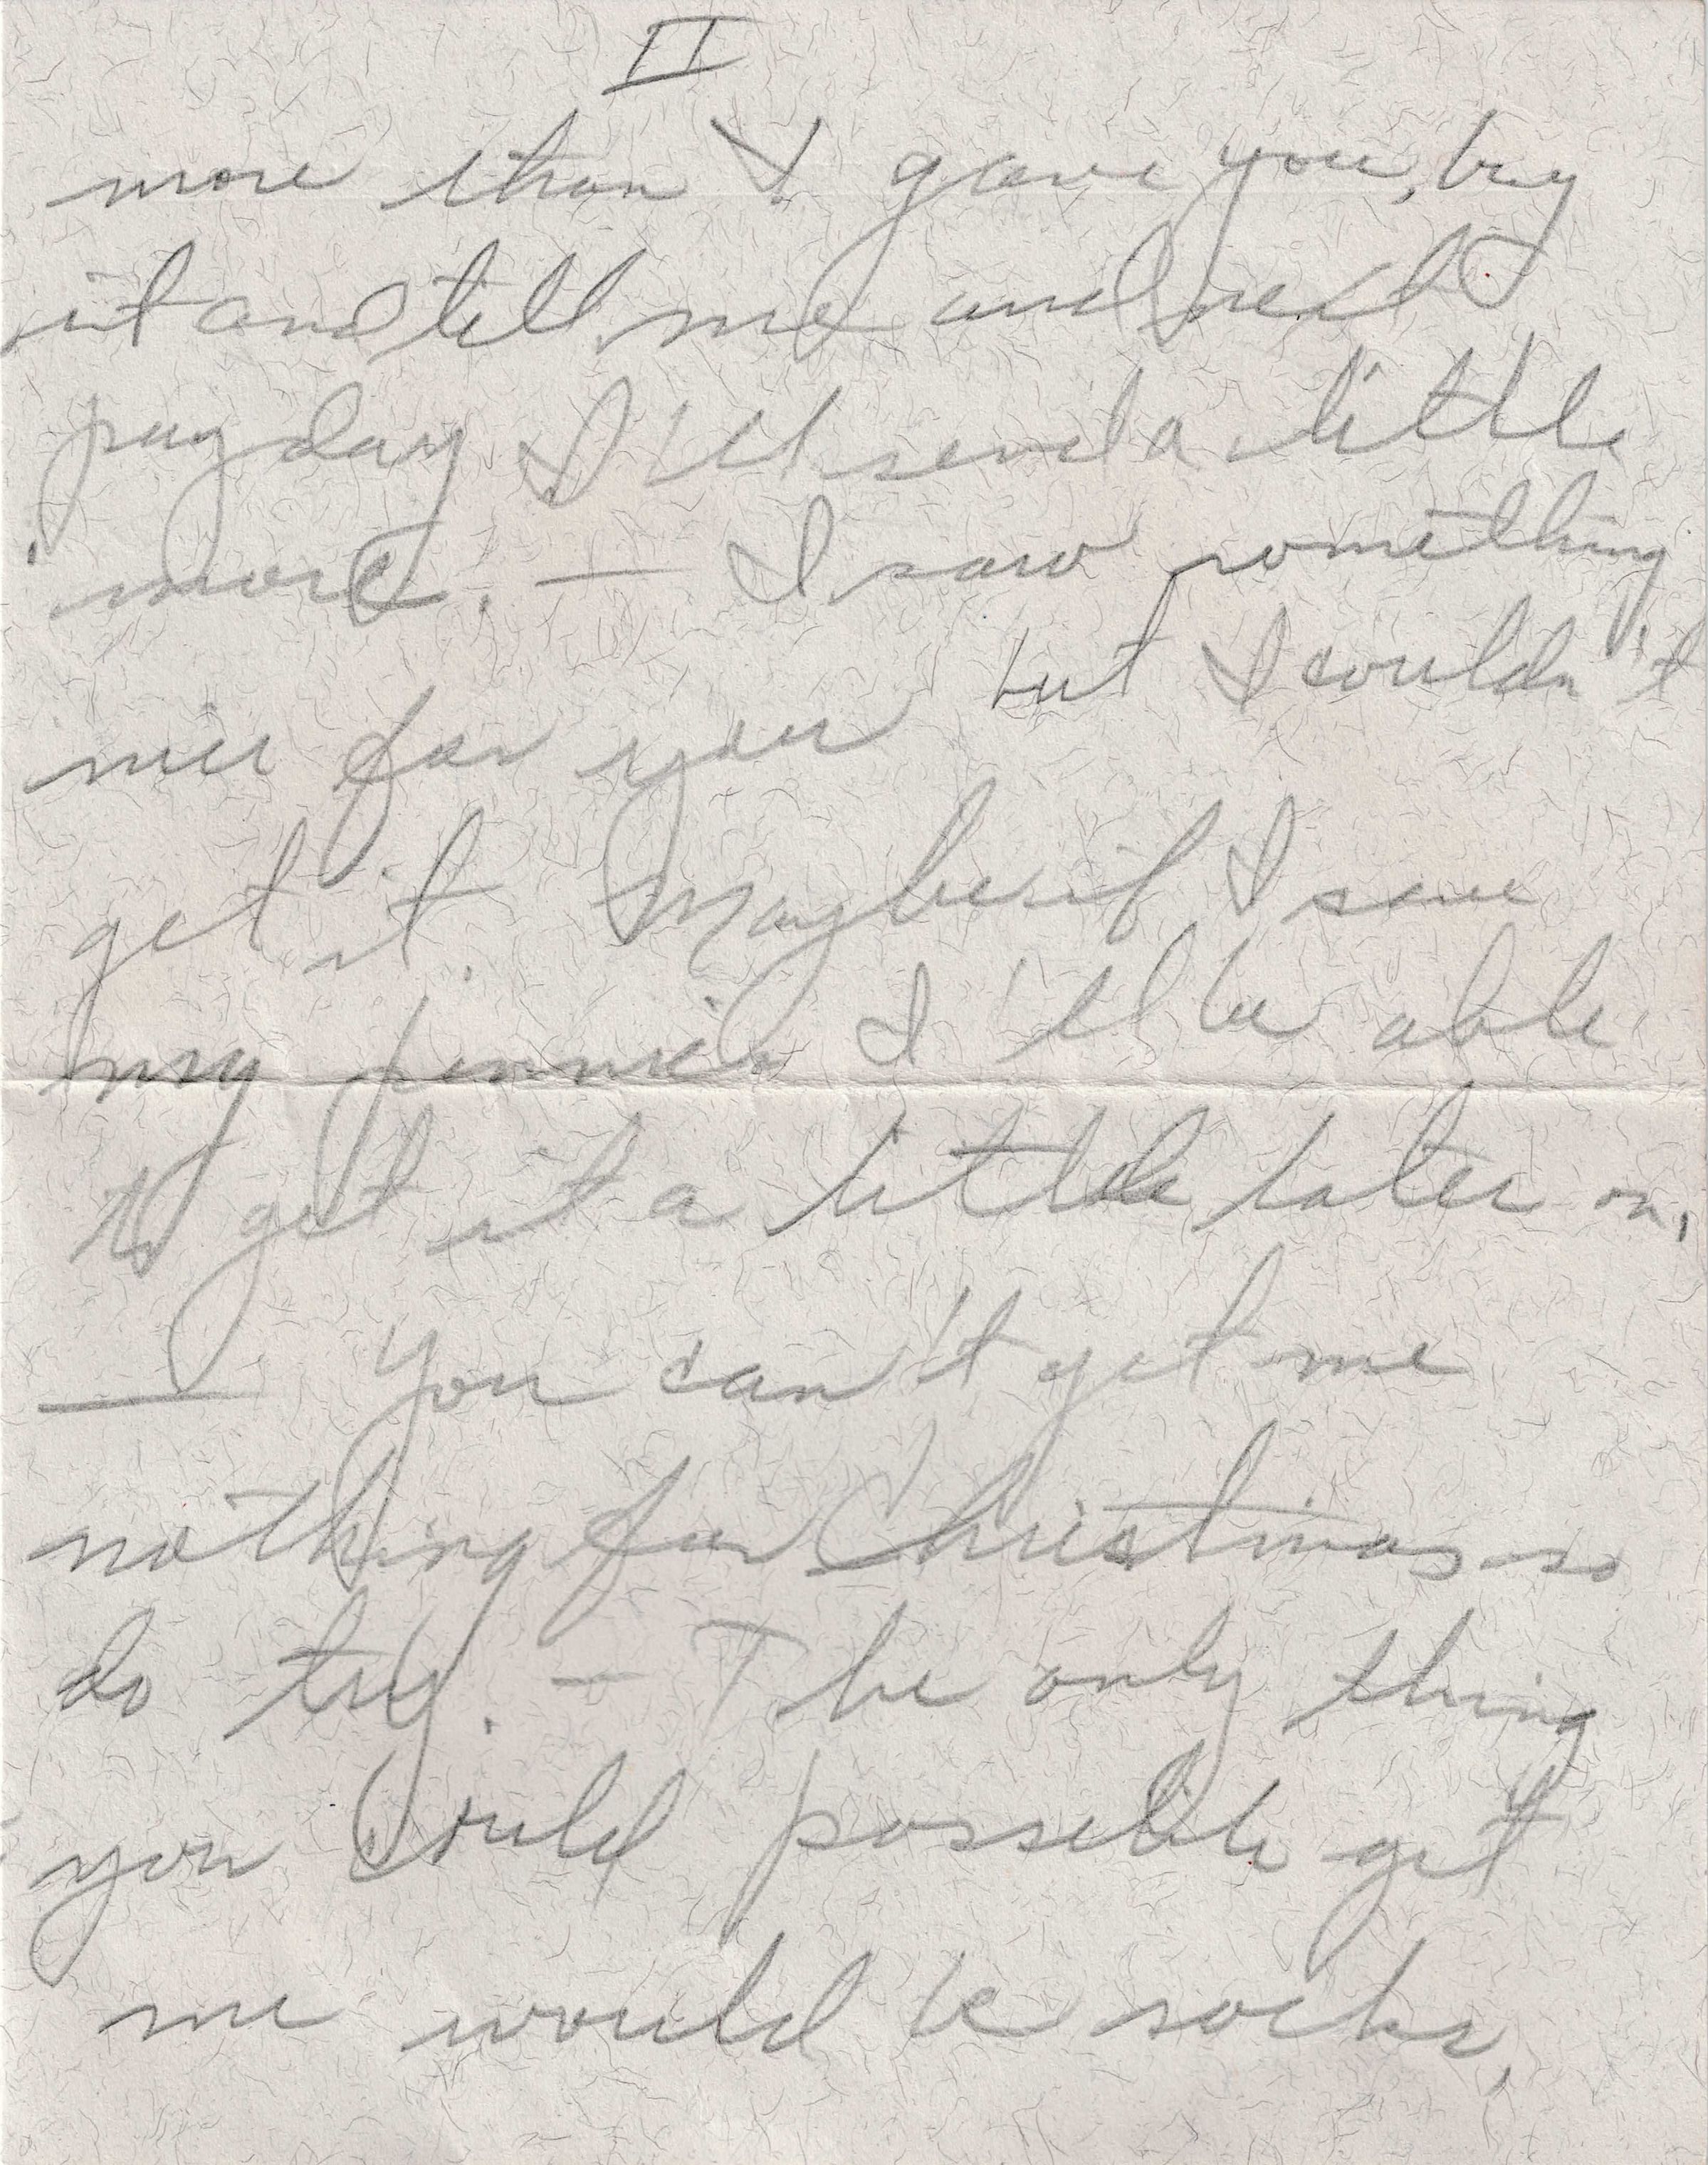 II
more than I gave you, buy
it and tell me and next
pay day I'll send a little
more. — I saw something
nice for you but I couldn't
get it. Maybe if I save
my pennies I'll be able
to get it a little later on.
— You can't get me
nothing for Christmas so
do try. — The only thing
you could possible get
me would be socks,